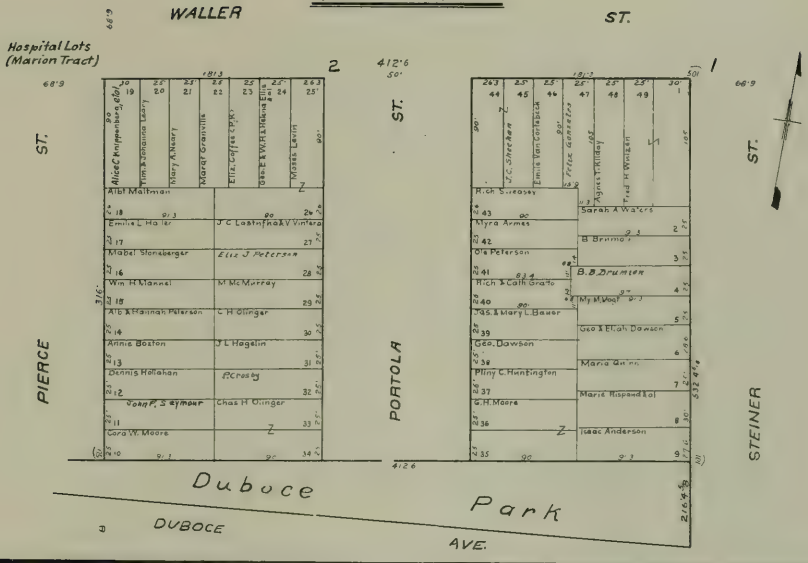 WALLER ST.
68'9
Hospital Lots
(Marion Tract)
2
412'6
50'
1
50'
68'9
181'3
66'9
30 25' 25' 25' 25' 25' 26'3
19 20 21 22 23 24 25'
90'
Alice C Knippenberg, etal
Tim. & Johanna Leary
Mary A. Neary
Margt Granville
Eliz. Coffee
Geo. E & W.H. & Helena Ellis
Moses Levin
90'
Z
Albt Maltman
18
91'3
90
26
Emilie L Haller
17
27
Mabel Stoneberger
16
Eliz J Peterson
28
Wm H Mannel
15
M McMurray
29
Alb & Hannah Peterson
14
C H Olinger
30
Annie Boston
13
J L Hagelin
31
Dennis Hollahan
12
P. Crosby
32
John P. Seymour
11
Chas H Olinger
33
Cora W. Moore
10
91'3
Z
90
34
316'
PIERCE ST.
PORTOLA ST.
STEINER ST.
26'3 25' 25' 25' 25' 25' 30'
44 45 46 47 48 49 1
90'
J.C. Sheehan
Emile Van Cortebeck
Felix Gonsales
Agnes T. Kilday
Fred H Whizen
105
43
Sarah A Waters
2
Myra Armes
42
B Brumo
3
Ole Peterson
41
B.B. Brunion
4
Rich & Cath Gratto
40
My M. Vogt
5
Jas. & Mary L. Bauer
39
Geo & Elizh Dawson
6
Geo. Dawson
38
Maria Quinn
7
Pliny C. Huntington
37
Marie Rispond &al
8
G.H. Moore
36
Isaac Anderson
9
Z
35
90
412'6
Duboce Park
DUBOCE AVE.